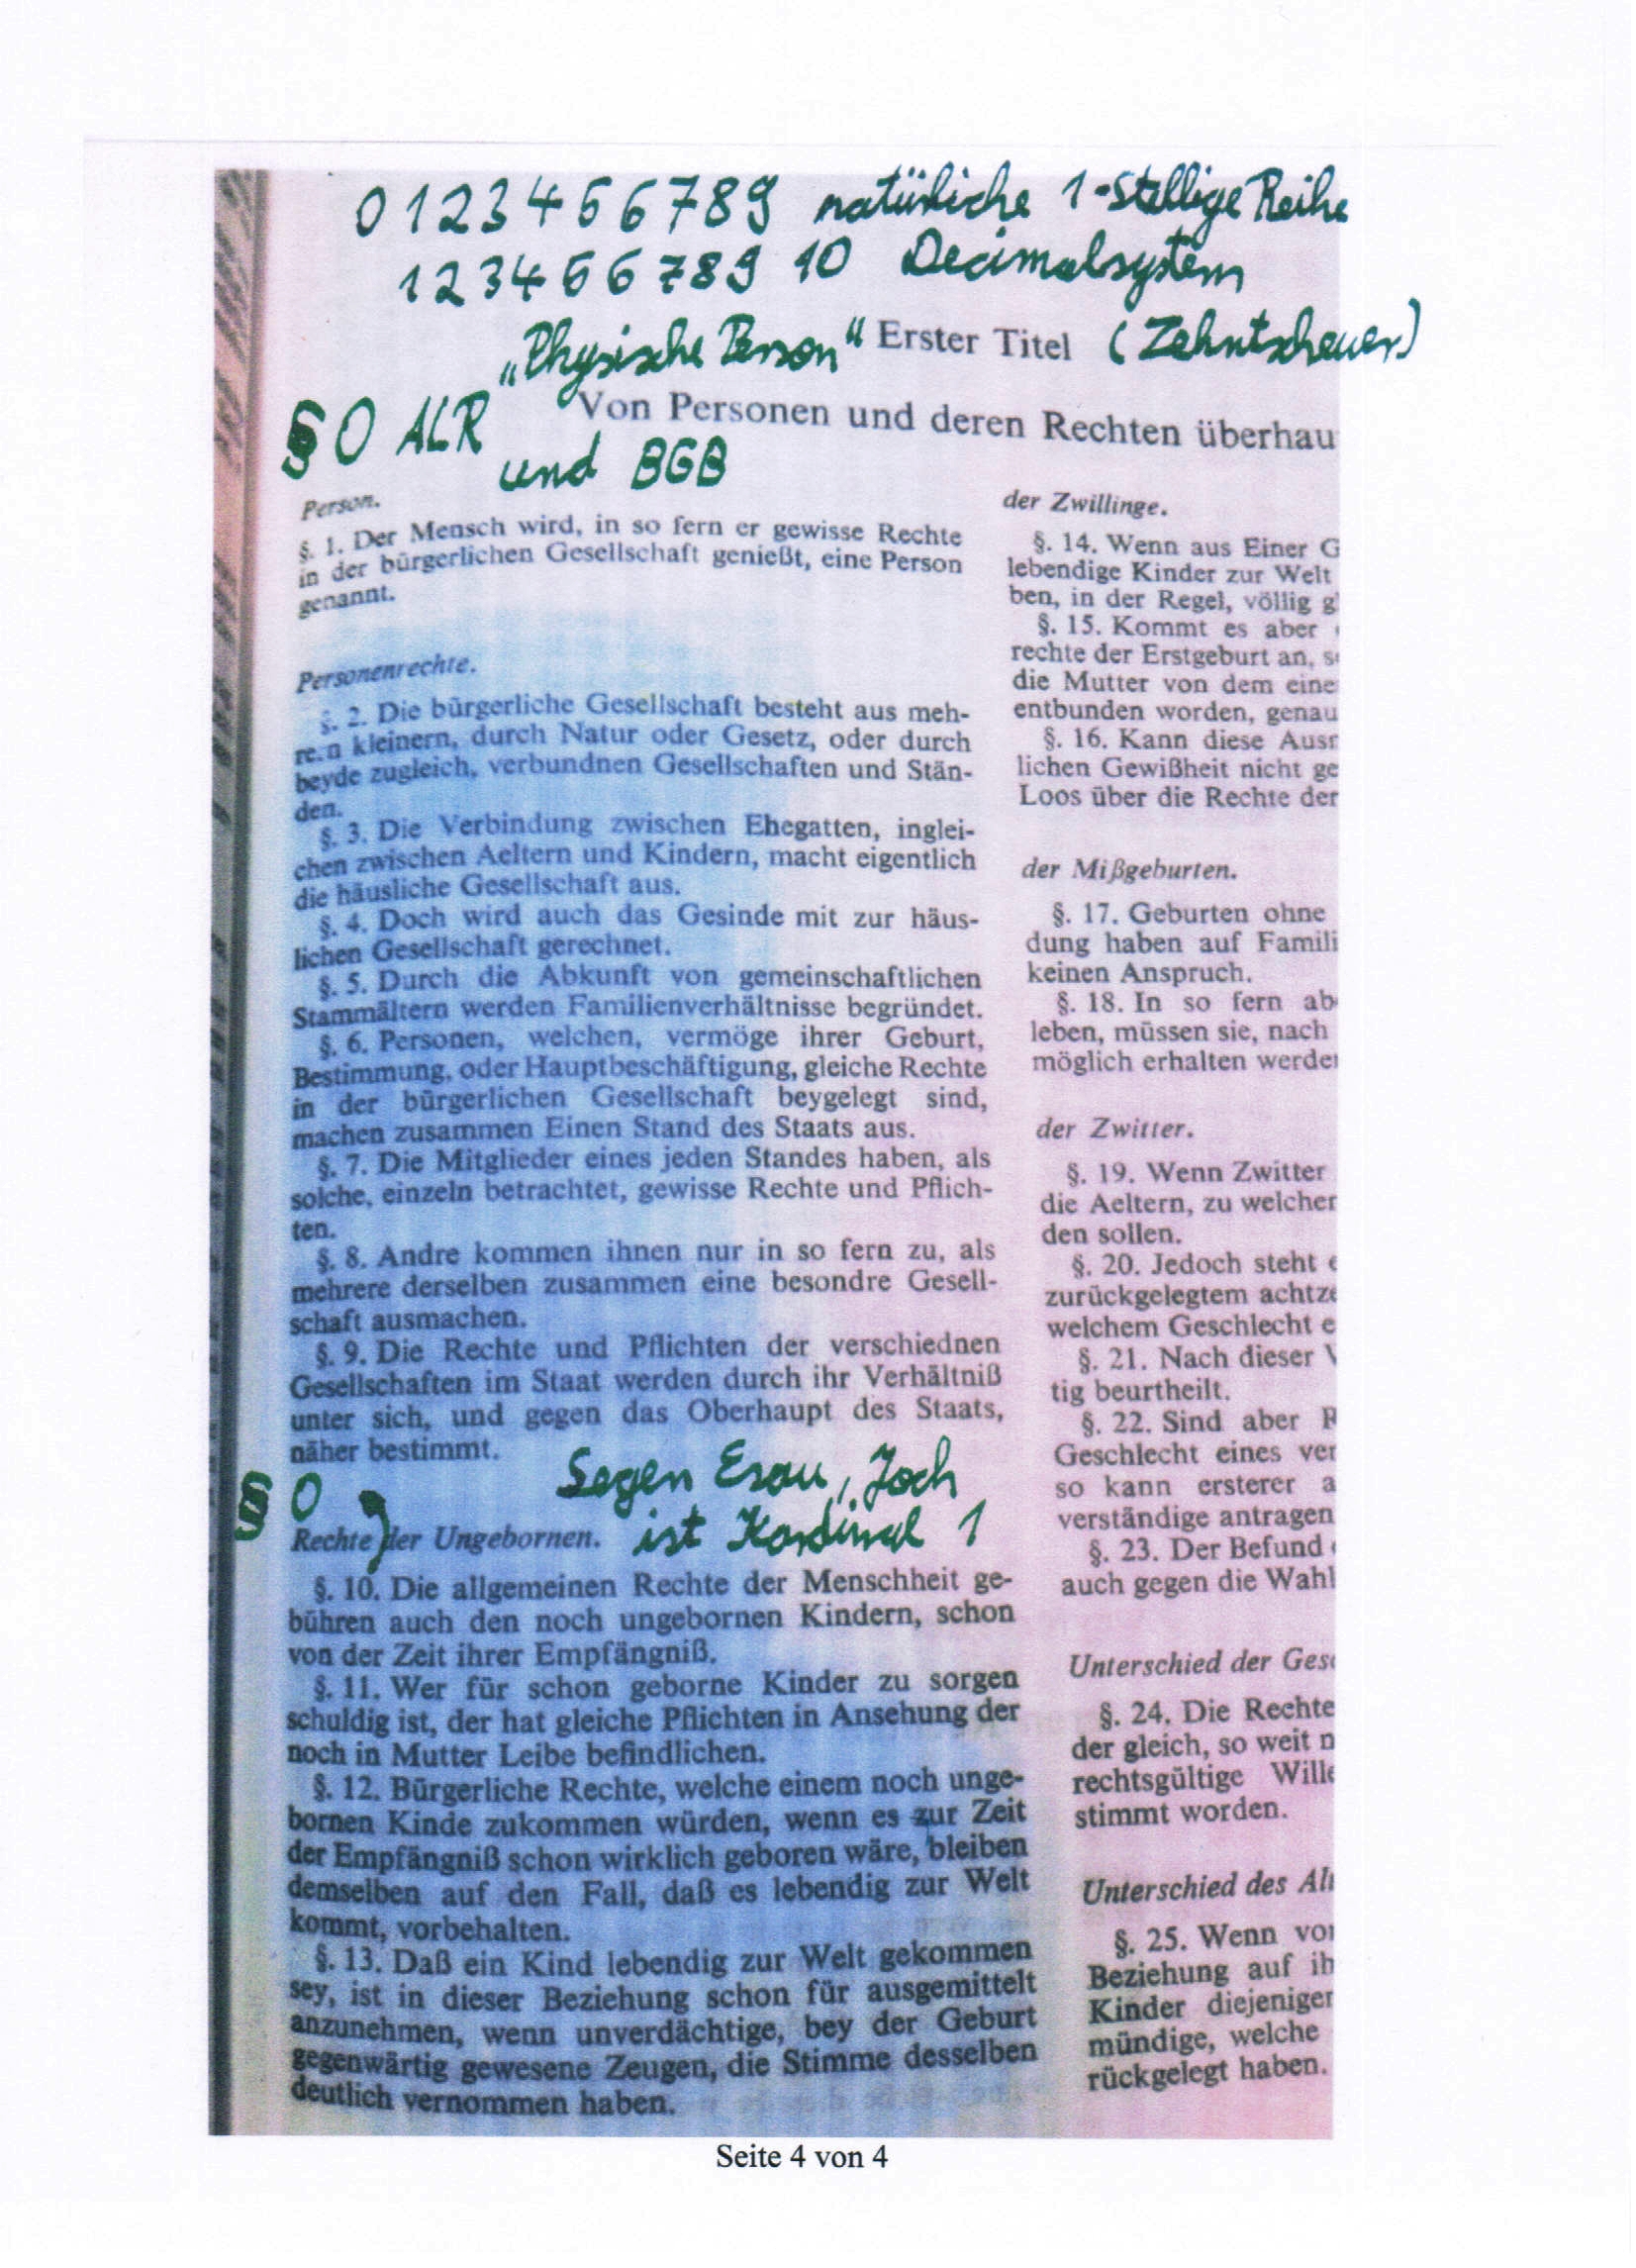 0 1 2 3 4 5 6 7 8 9 natürliche 1-stellige Reihe
1 2 3 4 5 6 7 8 9 10 Decimalsystem
„Physische Person“ Erster Titel (Zehntscheuer)
§ 0 ALR
Von Personen und deren Rechten überhau
und BGB
Person.
§. 1. Der Mensch wird, in so fern er gewisse Rechte
in der bürgerlichen Gesellschaft genießt, eine Person
genannt.
Personenrechte.
§. 2. Die bürgerliche Gesellschaft besteht aus meh-
rern kleinern, durch Natur oder Gesetz, oder durch
beyde zugleich, verbundnen Gesellschaften und Stän-
den.
§. 3. Die Verbindung zwischen Ehegatten, inglei-
chen zwischen Aeltern und Kindern, macht eigentlich
die häusliche Gesellschaft aus.
§. 4. Doch wird auch das Gesinde mit zur häus-
lichen Gesellschaft gerechnet.
§. 5. Durch die Abkunft von gemeinschaftlichen
Stammältern werden Familienverhältnisse begründet.
§. 6. Personen, welchen, vermöge ihrer Geburt,
Bestimmung, oder Hauptbeschäftigung, gleiche Rechte
in der bürgerlichen Gesellschaft beygelegt sind,
machen zusammen Einen Stand des Staats aus.
§. 7. Die Mitglieder eines jeden Standes haben, als
solche, einzeln betrachtet, gewisse Rechte und Pflich-
ten.
§. 8. Andre kommen ihnen nur in so fern zu, als
mehrere derselben zusammen eine besondre Gesell-
schaft ausmachen.
§. 9. Die Rechte und Pflichten der verschiednen
Gesellschaften im Staat werden durch ihr Verhältniß
unter sich, und gegen das Oberhaupt des Staats,
näher bestimmt.
§ 0 Segen Esau, Joch
ist Kardinal 1
Rechte der Ungebornen.
§. 10. Die allgemeinen Rechte der Menschheit ge-
bühren auch den noch ungebornen Kindern, schon
von der Zeit ihrer Empfängniß.
§. 11. Wer für schon geborne Kinder zu sorgen
schuldig ist, der hat gleiche Pflichten in Ansehung der
noch in Mutter Leibe befindlichen.
§. 12. Bürgerliche Rechte, welche einem noch unge-
bornen Kinde zukommen würden, wenn es zur Zeit
der Empfängniß schon wirklich geboren wäre, bleiben
demselben auf den Fall, daß es lebendig zur Welt
kommt, vorbehalten.
§. 13. Daß ein Kind lebendig zur Welt gekommen
sey, ist in dieser Beziehung schon für ausgemittelt
anzunehmen, wenn unverdächtige, bey der Geburt
gegenwärtig gewesene Zeugen, die Stimme desselben
deutlich vernommen haben.
der Zwillinge.
§. 14. Wenn aus Einer G
lebendige Kinder zur Welt
ben, in der Regel, völlig g
§. 15. Kommt es aber
rechte der Erstgeburt an, s
die Mutter von dem eine
entbunden worden, genau
§. 16. Kann diese Ausm
lichen Gewißheit nicht ge
Loos über die Rechte der
der Mißgeburten.
§. 17. Geburten ohne
dung haben auf Famili
keinen Anspruch.
§. 18. In so fern ab
leben, müssen sie, nach
möglich erhalten werde
der Zwitter.
§. 19. Wenn Zwitter
die Aeltern, zu welcher
den sollen.
§. 20. Jedoch steht e
zurückgelegtem achtze
welchem Geschlecht e
§. 21. Nach dieser
tig beurtheilt.
§. 22. Sind aber R
Geschlecht eines ver
so kann ersterer a
verständige antragen
§. 23. Der Befund
auch gegen die Wahl
Unterschied der Gesc
§. 24. Die Rechte
der gleich, so weit n
rechtsgültige Wille
stimmt worden.
Unterschied des Alt
§. 25. Wenn von
Beziehung auf ih
Kinder diejeniger
mündige, welche
rückgelegt haben.
Seite 4 von 4